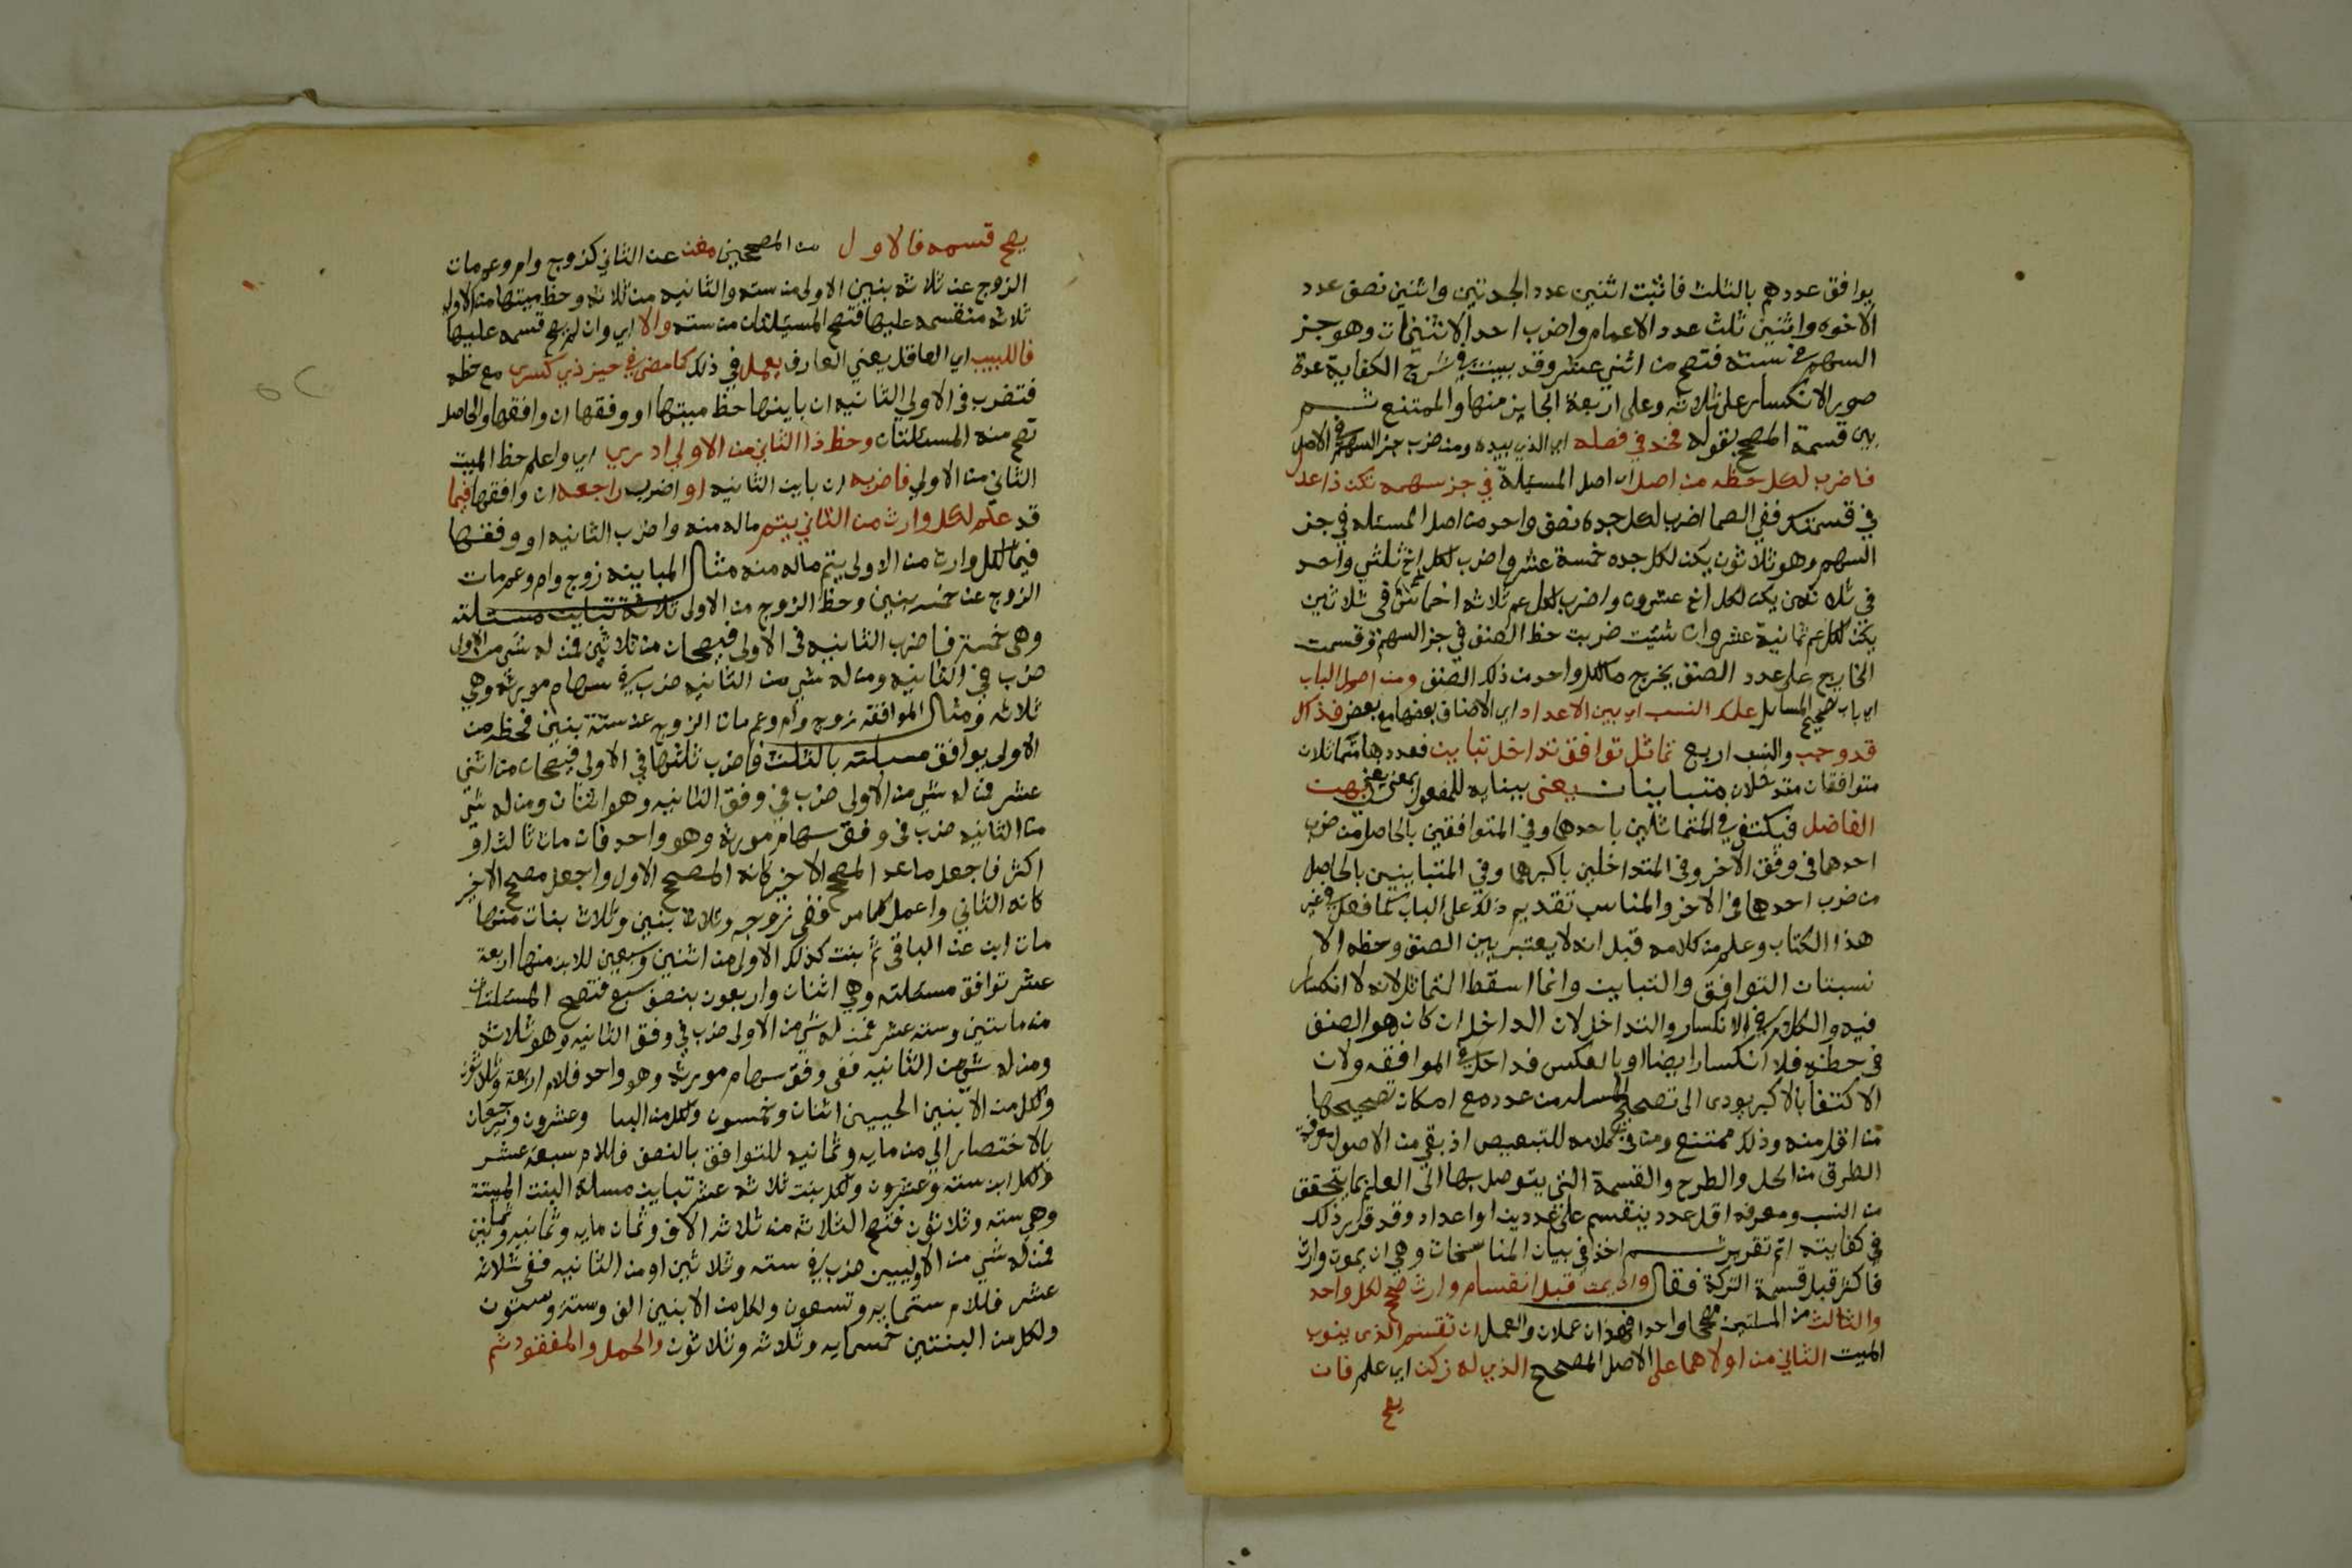 يوافق عددهم بالثلث فاثبت اثنين عدد الجدتين واثنين نصف عدد
الاخوه واثنين ثلث عدد الاعمام واضرب احد الاثنينات وهو جز
السهم في سته فتصح من اثني عشر وقد بينت في شرح الكفاية عدة
صور الانكسار على ثلاثه وعلى اربعة الجايز منها والممتنع ثم
بين قسمة المصحح بقوله فخذ في فصله اي الذي بيده ومن ضرب جز السهم في الاصل
فاضرب لكل حظه من اصل اي اصل المسئلة في جز سهمه تكن ذا عدل
في قسمتك ففي الصما اضرب لكل جده نصف واحد من اصل المسئله في جز
السهم وهو ثلاثون يكن لكل جده خمسة عشر واضرب لكل اخ ثلثي واحد
في ثلاثين يكن لكل اخ عشرون واضرب لكل عم ثلاثه اخماس في ثلاثين
يكن لكل عم ثمانية عشر وان شئت ضربت حظ الصنف في جز السهم وقسمت
الخارج على عدد الصنف يخرج مالكل واحد من ذلك الصنف ومن اصول الباب
اي باب تصحيح المسايل علم النسب اي بين الاعداد اي الاصناف بعضها مع بعض فذاك
قد وجب والنسب اربع تماثل توافق تداخل تباين فعددها متماثلان
متوافقان متداخلان متباينان يعنى ببنايه للمفعول بمعنى يعني بهن
الفاضل فيكتفي في المتماثلين باحدهما وفي المتوافقين بالحاصل من ضرب
احدهما في وفق الاخر وفي المتداخلين باكبرهما وفي المتباينين بالحاصل
من ضرب احدهما في الاخر والمناسب تقديم ذلك على الباب كما فعل في غير
هذا الكتاب وعلم من كلامه قبل انه لا يعتبر بين الصنف وحظه الا
نسبتان التوافق والتباين وانما اسقط التماثل لانه لا انكسار
فيه والكلام في الانكسار والتداخل لان الداخل ان كان هو الصنف
في حظه فلا انكسار ايضا او بالعكس فداخل في الموافقه ولان
الاكتفا بالاكبر يودى الى تصحيح المسله من عدد مع امكان تصحيحها
من اقل منه وذلك ممتنع ومن في كلامه للتبعيض اذ بقي من الاصول معرفة
الطرق من الحل والطرح والقسمة التي يتوصل بها الى العلم بما يتحقق
من النسب ومعرفه اقل عدد ينقسم على عددين او اعداد وقد قرر ذلك
في كفايته اتم تقرير ثم اخذ في بيان المناسخات وهي ان يموت وارث
فاكثر قبل قسمة التركة فقال وان يمت قبل انقسام وارث صحح لكل واحد
والثالث من المسلتين مصححا واحدا فهذان عملان والعمل ان تقسم الذى ينوب
الميت الثاني من اولاهما على الاصل المصحح الذي له زكن اي علم فان
يصح
يصح قسمه فالاول من المصححين مغن عن الثاني كزوج وام وعم مات
الزوج عن ثلاثه بنين الاولى من سته والثانيه من ثلاثه وحظ ميتها من الاولى
ثلاثه منقسمه عليها فتصح المسئلتان من سته والا اي وان لم يصح قسمه عليها
فاللبيب اي العاقل يعني العارف يعمل في ذلك كما مضى في حيز ذي كسر مع حظه
فتضرب في الاولى الثانيه ان باينها حظ ميتها او وفقها ان وافقها والحاصل
تصح منه المسئلتان وحظ ذا الثاني من الاولي ادري اي واعلم حظ الميت
الثاني من الاولي فاضربه ان باين الثانيه او اضرب راجعه ان وافقها فيما
قد علم لكل وارث من الثاني يتم ماله منه واضرب الثانيه او وفقها
فيما لكل وارث من الاولى يتم ماله منه مثال المباينه زوج وام وعم مات
الزوج عن خمسه بنين وحظ الزوج من الاولى ثلاثة تباين مسئلته
وهي خمسة فاضرب الثانيه في الاولى فيصحان من ثلاثين فمن له شي من الاولى
ضرب في الثانيه ومن له شي من الثانيه ضرب في سهام مورثه وهي
ثلاثه ومثال الموافقه زوج وام وعم مات الزوج عن ستة بنين فحظه من
الاولى يوافق مسئلته بالثلث فاضرب ثلثها في الاولى فيصحان من اثني
عشر فمن له شي من الاولى ضرب في وفق الثانيه وهو اثنان ومن له شي
من الثانيه ضرب في وفق سهام مورثه وهو واحد فان مات ثالث او
اكثر فاجعل ما عدا المصحح الاخير كانه المصحح الاول واجعل مصحح الاخير
كانه الثاني واعمل كما مر ففي زوجه وثلاثة بنين وثلاث بنات منها
مات ابن عن الباقي ثم بنت كذلك الاولى من اثنين وسبعين للابن منها اربعة
عشر توافق مسئلته وهي اثنان واربعون بنصف سبع فتصح المسئلتان
من مايتين وسته عشر فمن له شي من الاولى ضرب في وفق الثانيه وهو ثلاثه
ومن له شي من الثانيه ففي وفق سهام مورثه وهو واحد فللام اربعة وثلاثون
ولكل من الابنين الحيين اثنان وخمسون ولكل من البنا وعشرون وترجعان
بالاختصار الي من مايه وثمانيه للتوافق بالنصف فللام سبعة عشر
ولكل ابن سته وعشرون ولكل بنت ثلاثه عشر تباين مسلة البنت الميتة
وهي سته وثلاثون فتصح الثلاثه من ثلاثه الاف وثمان مايه وثمانيه وثمانين
فمن له شي من الاوليين ضرب في سته وثلاثين او من الثانيه ففي ثلاثه
عشر فللام ستمايه وتسعون ولكل من الابنين الف وستة وستون
ولكل من البنتين خمسمايه وثلاثه وثلاثون والحمل والمفقود ثم